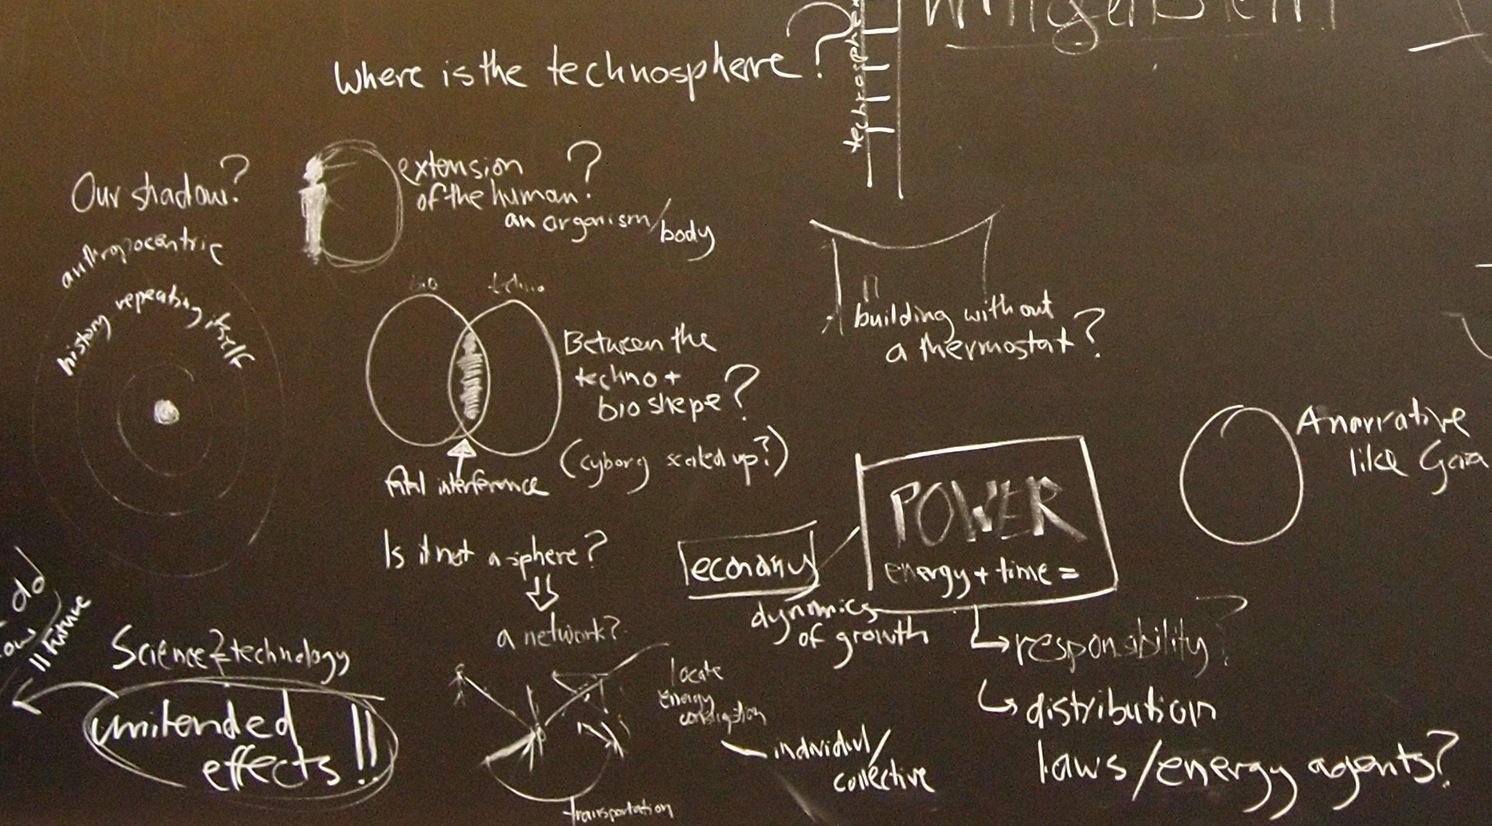 Where is the technosphere?
technosphere
Our shadow?
anthropocentric
history repeating itself
extension ?
of the human?
an organism/
body
bio techno
Between the
techno +
bio shepe?
(cyborg scaled up?)
fatal interference
building without
a thermostat?
A narrative
like Gaia
POWER
energy + time =
economy
dynamics
of growth
responsability?
distribution
laws/energy agents?
Is it not a sphere?
a network?
locate
energy
individual/
collective
transportation
do
future
Science ≠ technology
unitended
effects!!